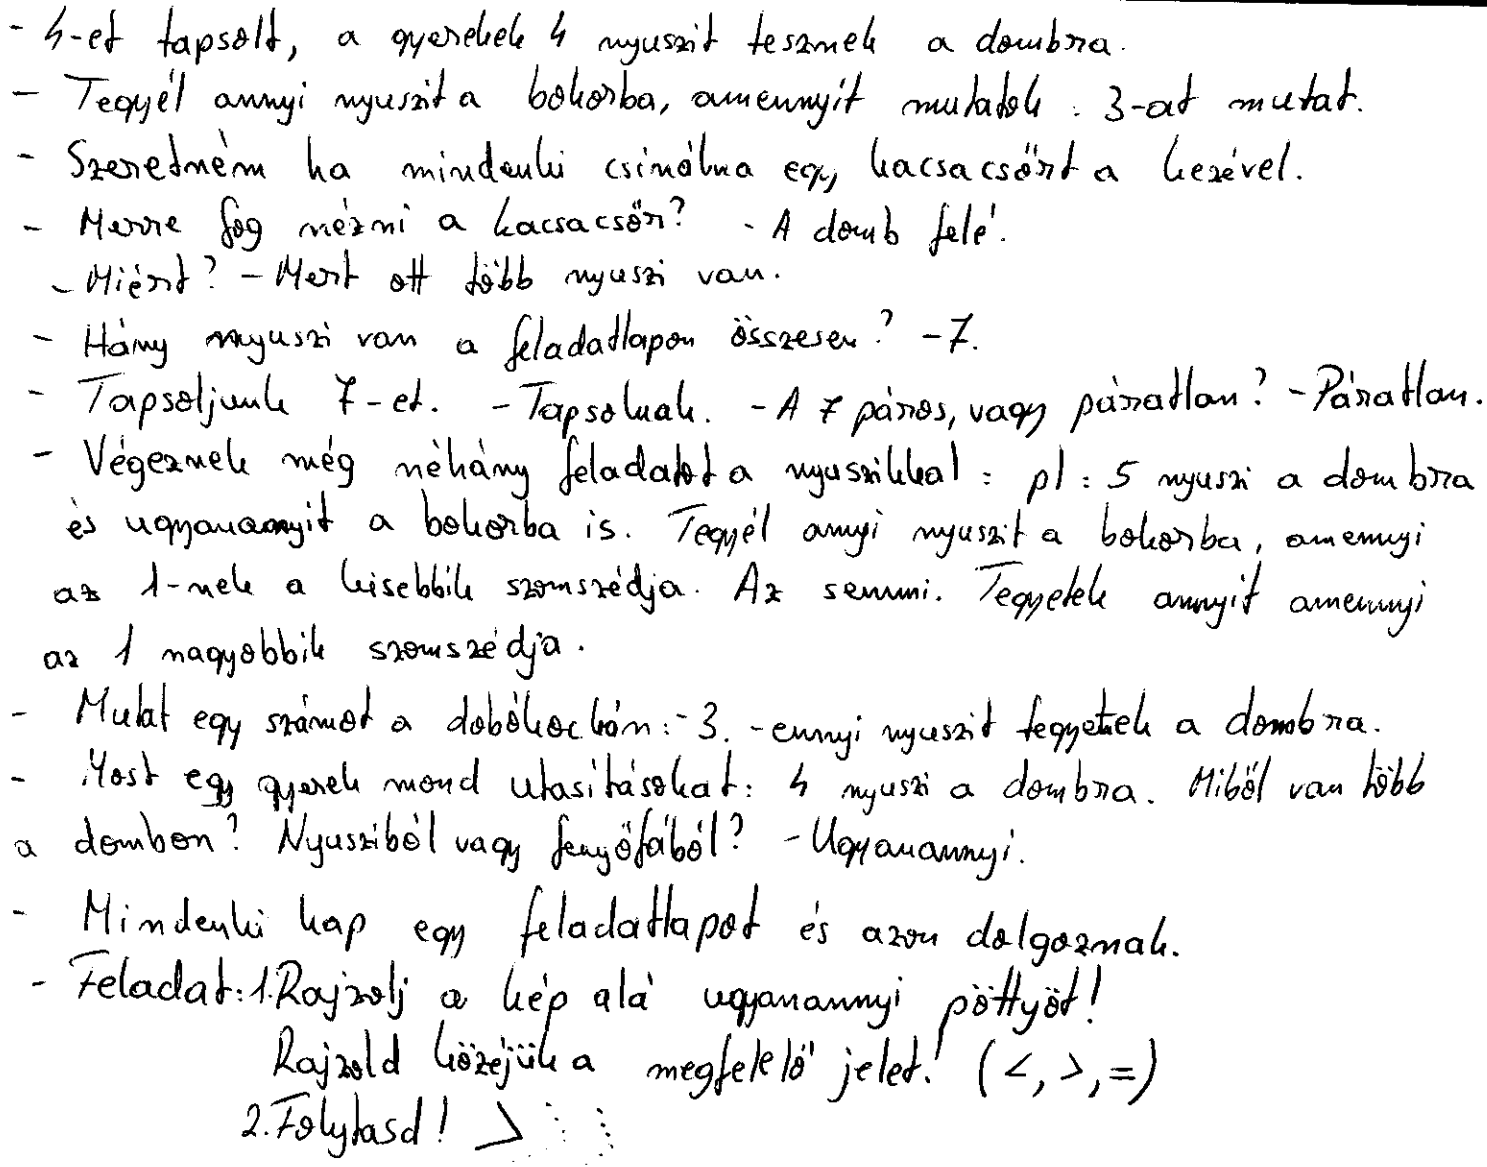 - 4-et tapsolt, a gyerekek 4 nyuszit tesznek a dombra.
- Tegyél annyi nyuszit a bokorba, amennyit mutatok : 3-at mutat.
- Szeretném ha mindenki csinálna egy kacsacsőrt a kezével.
- Merre fog nézni a kacsacsőr? - A domb felé.
- Miért? - Mert ott több nyuszi van.
- Hány nyuszi van a feladatlapon összesen? - 7.
- Tapsoljunk 7-et. - Tapsolnak. - A 7 páros, vagy páratlan? - Páratlan.
- Végeznek még néhány feladatot a nyuszikkal : pl : 5 nyuszi a dombra
és ugyanannyit a bokorba is. Tegyél annyi nyuszit a bokorba, amennyi
az 1-nek a kisebbik szomszédja. Az semmi. Tegyetek annyit amennyi
az 1 nagyobbik szomszédja.
- Mutat egy számot a dobókockán: - 3. - ennyi nyuszit tegyetek a dombra.
- Most egy gyerek mond utasításokat: 4 nyuszi a dombra. Miből van több
a dombon? Nyusziból vagy fenyőfából? - Ugyanannyi.
- Mindenki kap egy feladatlapot és azon dolgoznak.
- Feladat: 1. Rajzolj a kép alá ugyanannyi pöttyöt!
Rajzold közéjük a megfelelő jelet! (<, >, =)
2. Folytasd! >